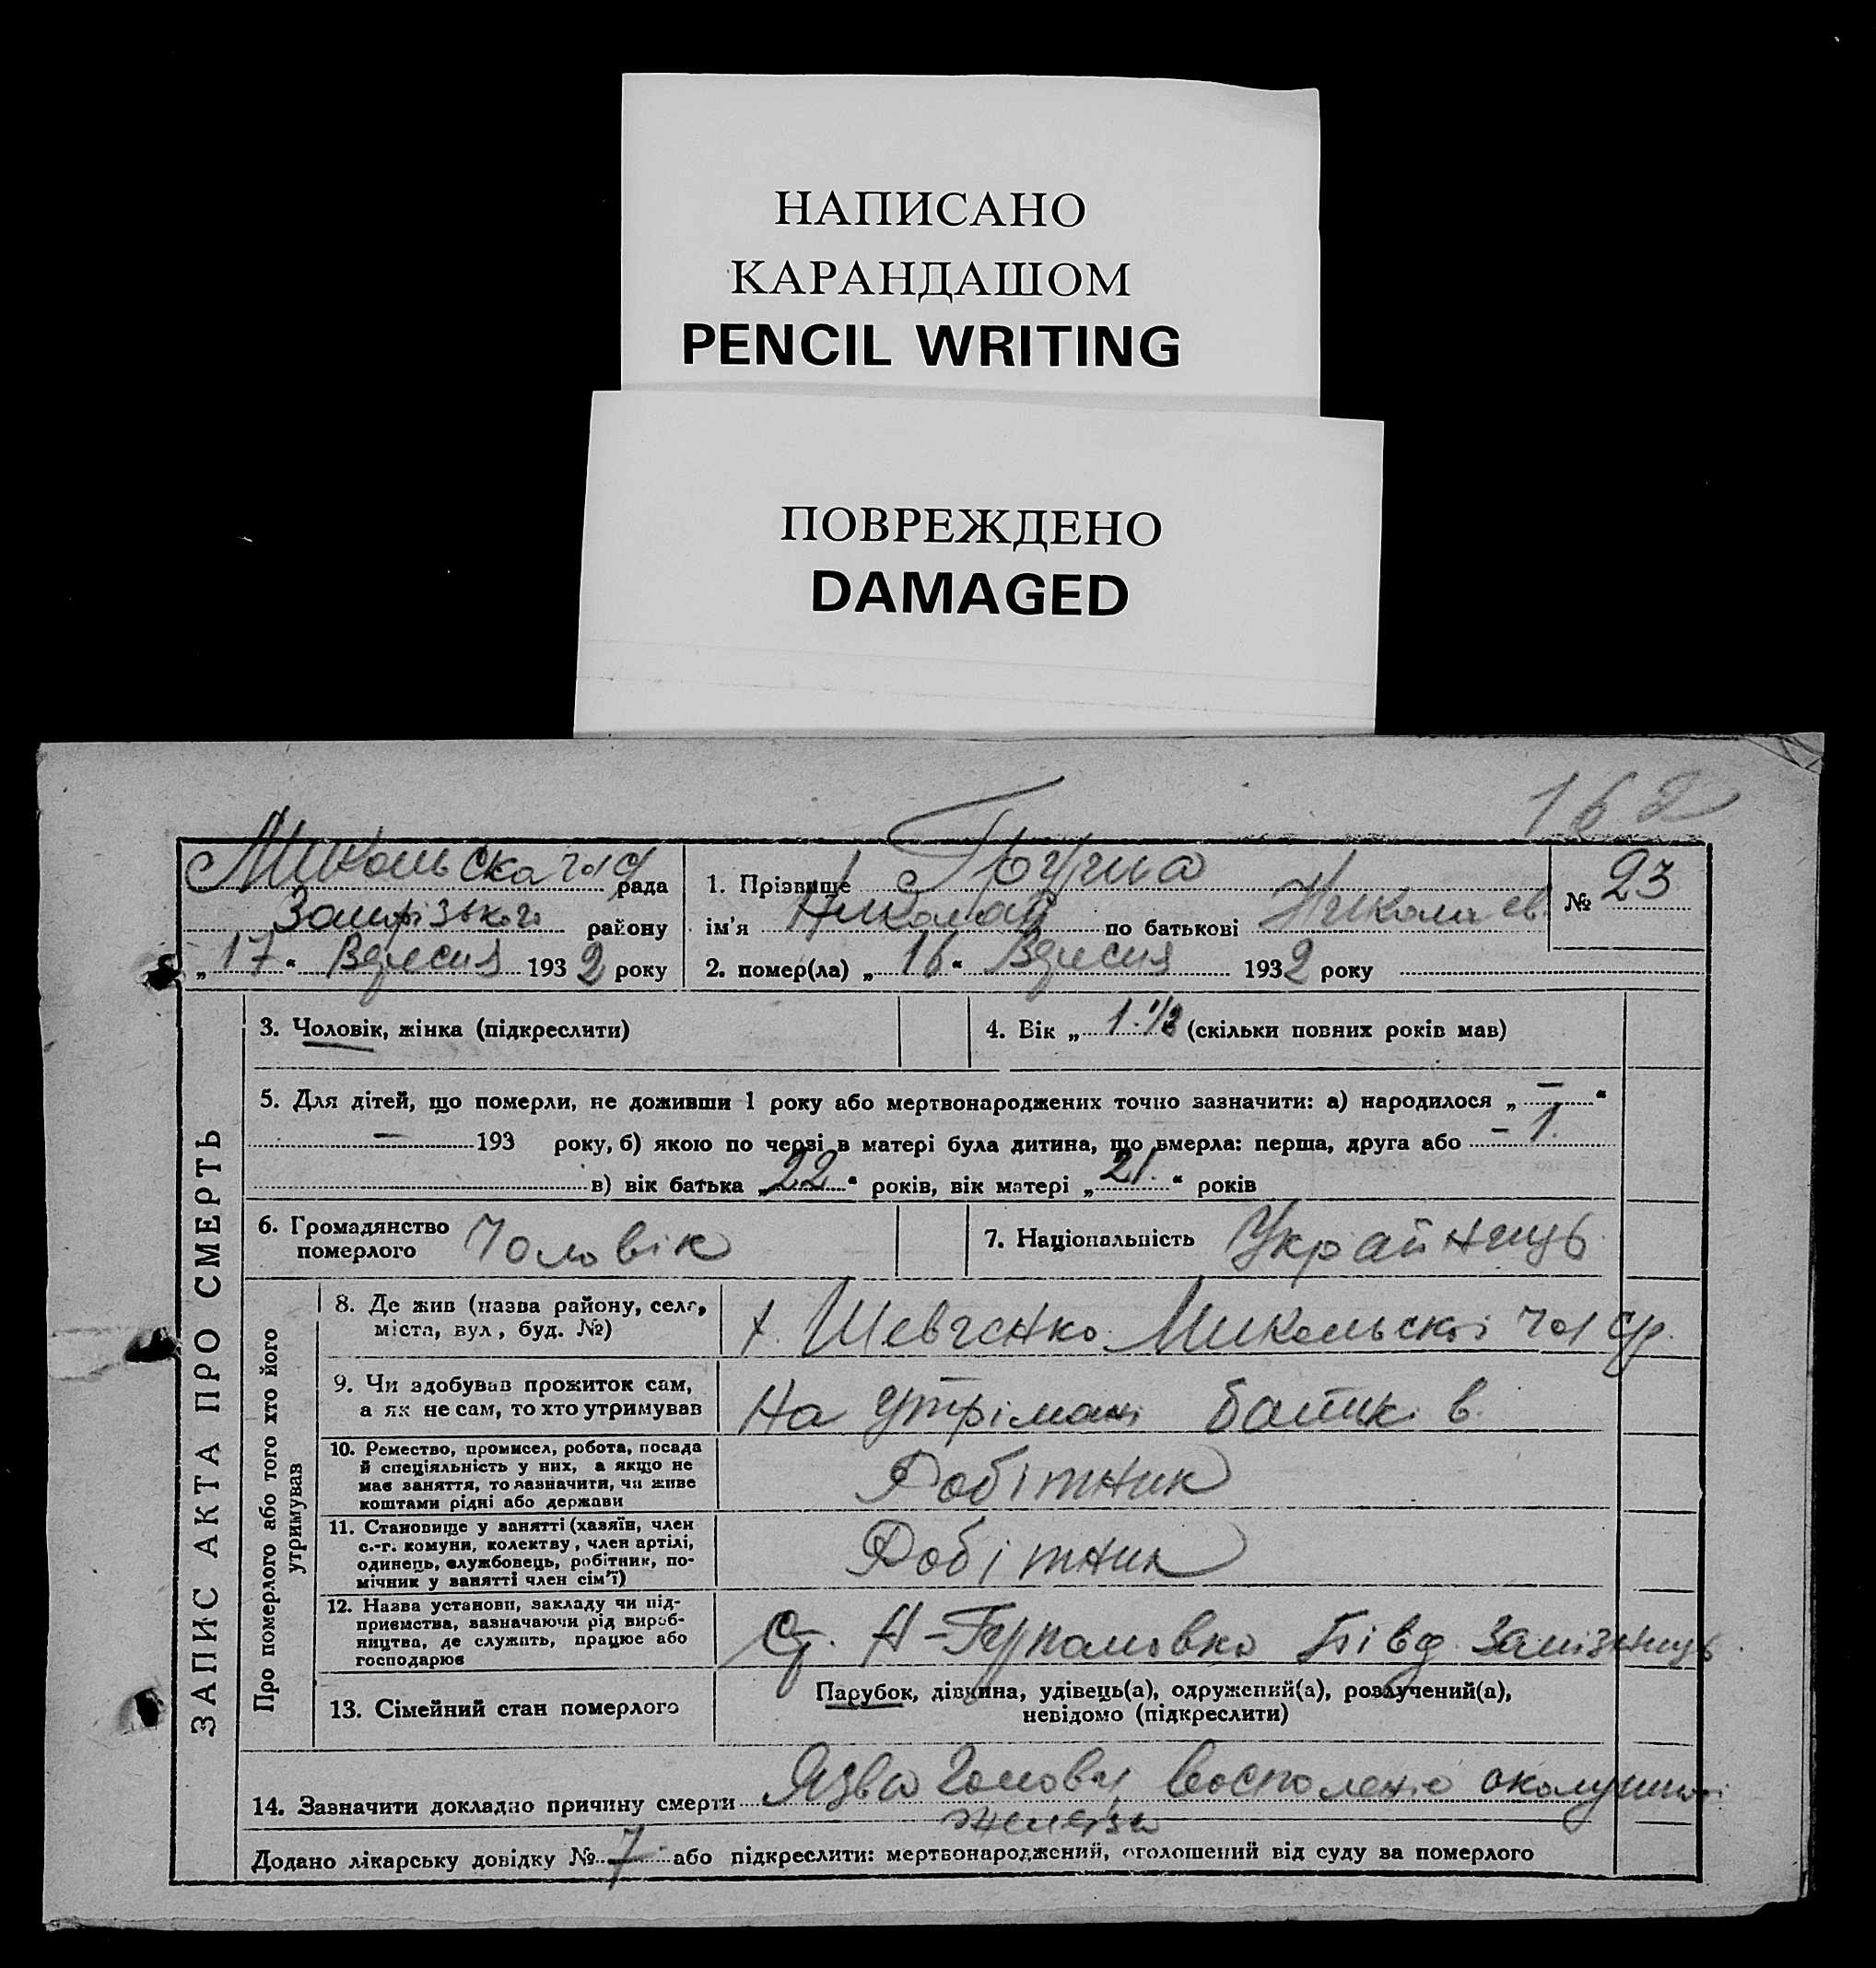 НАПИСАНО
КАРАНДАШОМ
PENCIL WRITING
ПОВРЕЖДЕНО
DAMAGED
162
Микольська рада
району
„ 17 “ Вересня 1932 року
1. Прізвище
ім'я Николай по батькові Николаев.
2. помер(ла) „ 16 “ Вересня 1932 року
№ 23
ЗАПИС АКТА ПРО СМЕРТЬ
3. Чоловік, жінка (підкреслити)
4. Вік „ 1. 1/2 (скільки повних років мав)
5. Для дітей, що померли, не доживши 1 року або мертвонароджених точно зазначити: а) народилося „ — “
— 193 року, б) якою по черзі в матері була дитина, що вмерла: перша, друга або – 1.
в) вік батька „ 22 “ років, вік матері „ 21. “ років
6. Громадянство
померлого Чоловік
7. Національність Українець
Про померлого або того хто його
утримував
8. Де жив (назва району, село,
міста, вул, буд. №)
х. Шевченко Микольскоі
9. Чи здобував прожиток сам,
а як не сам, то хто утримував
На утрімані батьків.
10. Ремество, промисел, робота, посада
й спеціяльність у них, а якщо не
має заняття, то зазначити, чи живе
коштами рідні або держави
Робітник
11. Становище у занятті (хазяїн, член
с.-г. комуни, колектву, член артілі,
одинець, службовець, робітник, по-
мічник у занятті член сім'ї)
Робітник
12. Назва установи, закладу чи під-
приємства, зазначаючи рід вироб-
ництва, де служить, працює або
господарює
Ст. Півд. Залізниць.
13. Сімейний стан померлого
Парубок, дівчина, удівець(а), одружений(а), розлучений(а),
невідомо (підкреслити)
14. Зазначити докладно причину смерти Язва Головы,
Додано лікарську довідку № 7 або підкреслити: мертвонароджений, оголошений від суду за померлого